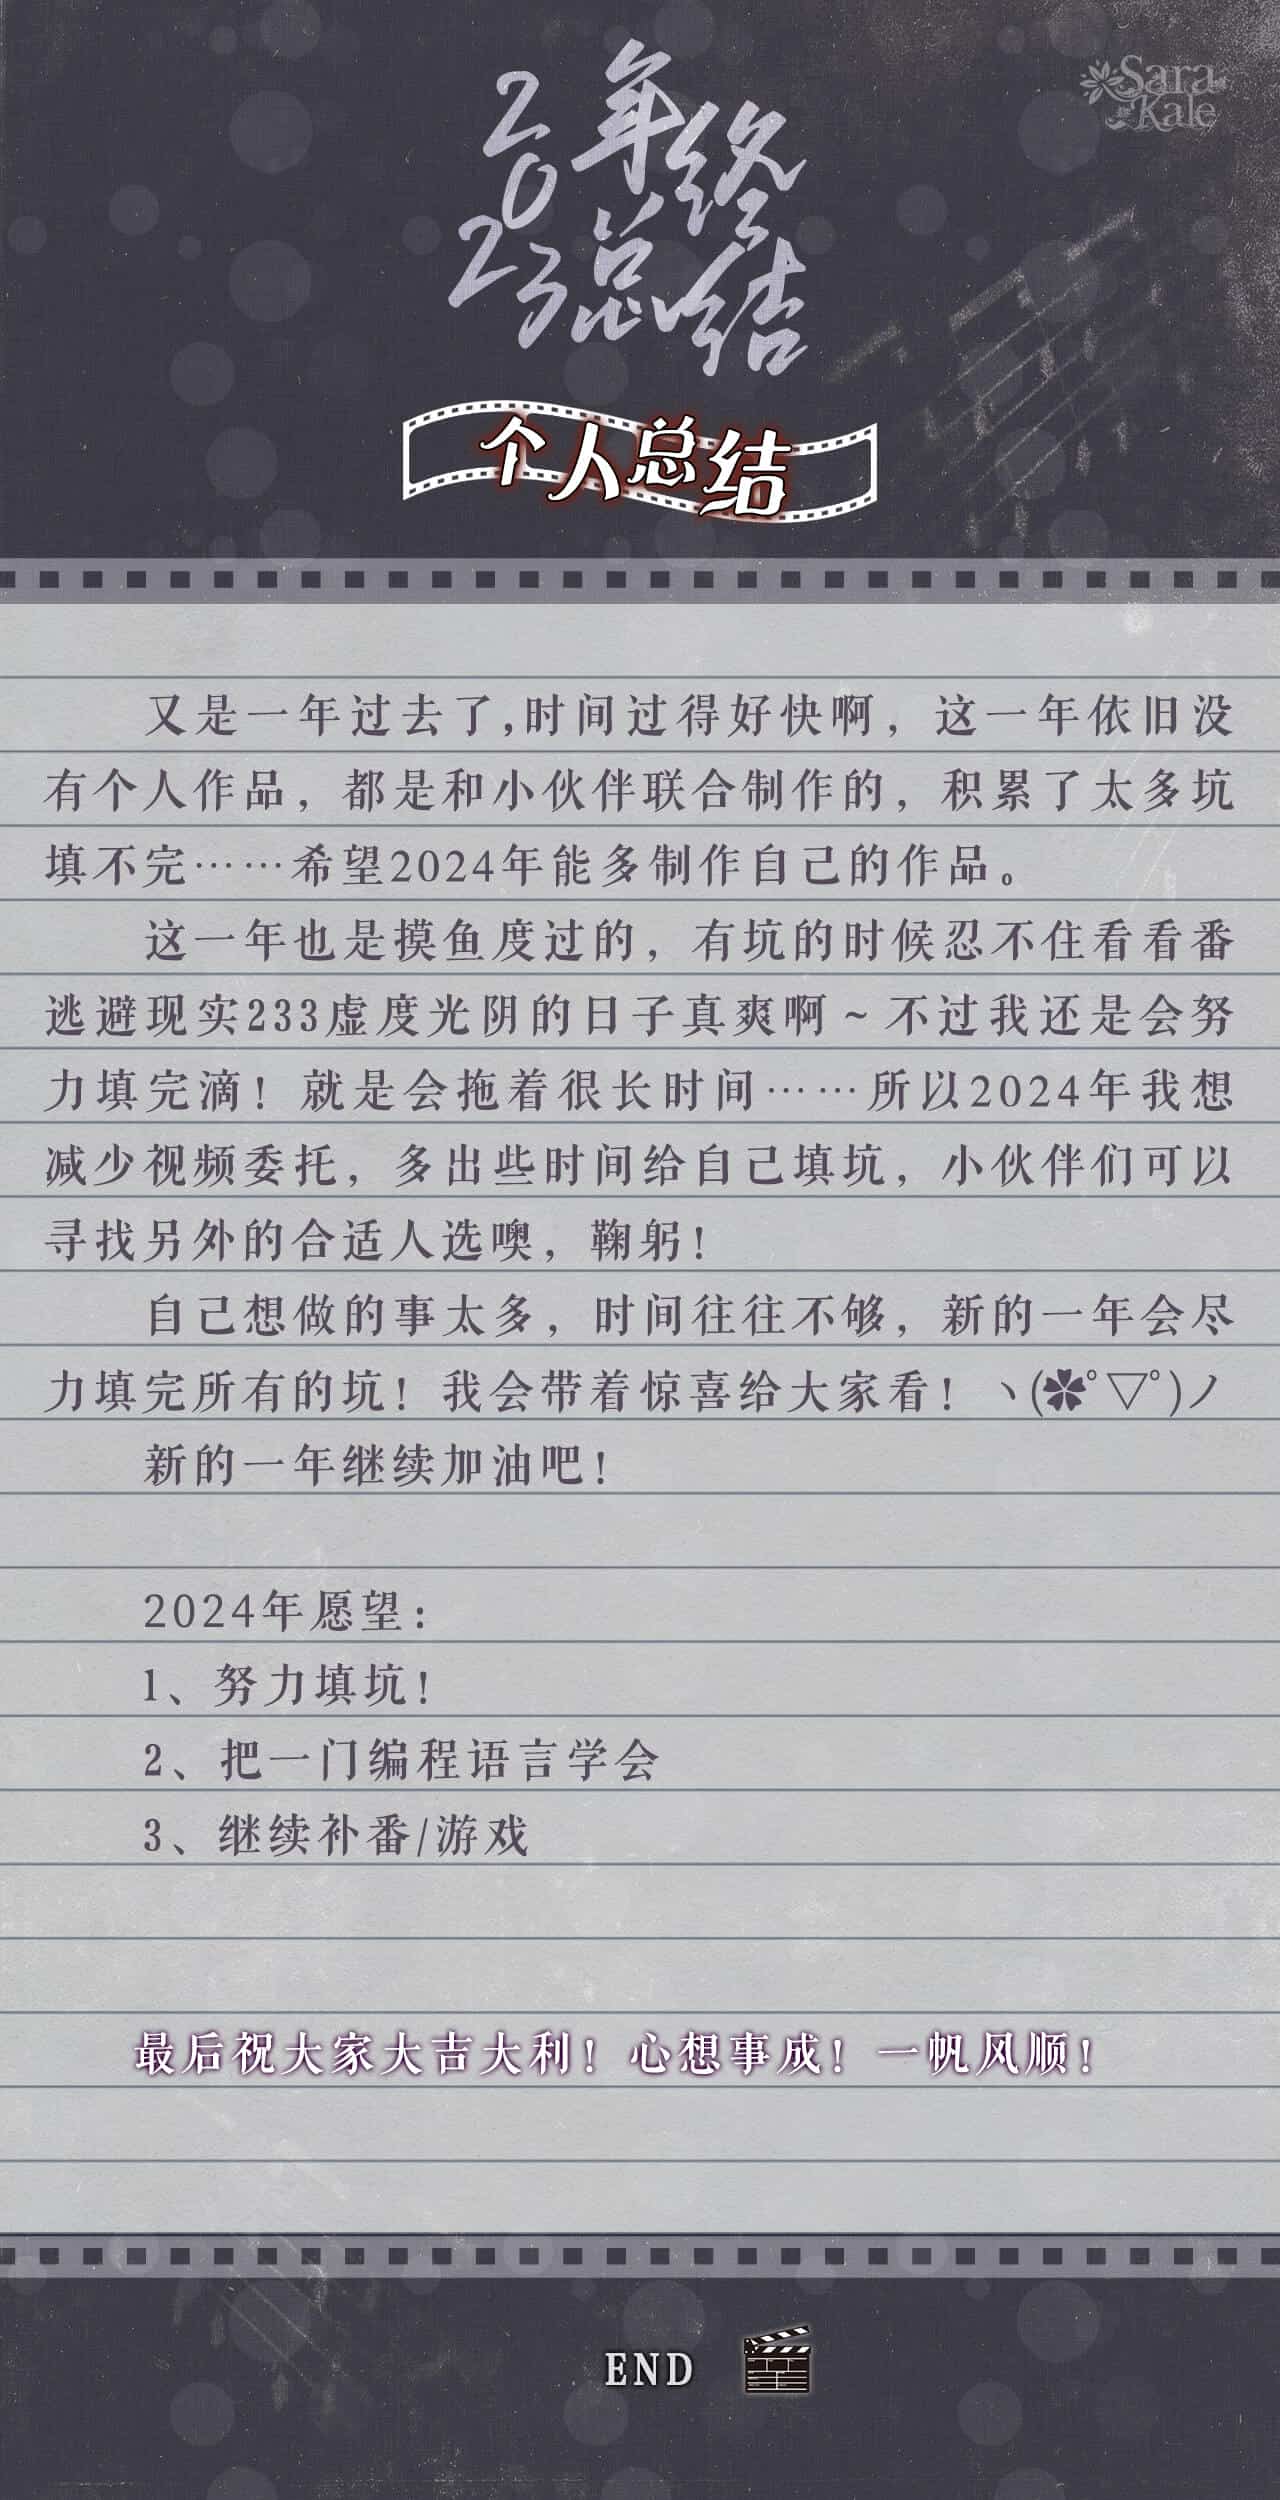 Sara
Kale
2023
年终
总结
个人总结
又是一年过去了,时间过得好快啊，这一年依旧没
有个人作品，都是和小伙伴联合制作的，积累了太多坑
填不完……希望2024年能多制作自己的作品。
这一年也是摸鱼度过的，有坑的时候忍不住看看番
逃避现实233虚度光阴的日子真爽啊～不过我还是会努
力填完滴！就是会拖着很长时间……所以2024年我想
减少视频委托，多出些时间给自己填坑，小伙伴们可以
寻找另外的合适人选噢，鞠躬！
自己想做的事太多，时间往往不够，新的一年会尽
力填完所有的坑！我会带着惊喜给大家看！ヽ(✿ﾟ▽ﾟ)ノ
新的一年继续加油吧！
2024年愿望：
1、努力填坑！
2、把一门编程语言学会
3、继续补番/游戏
最后祝大家大吉大利！心想事成！一帆风顺！
END